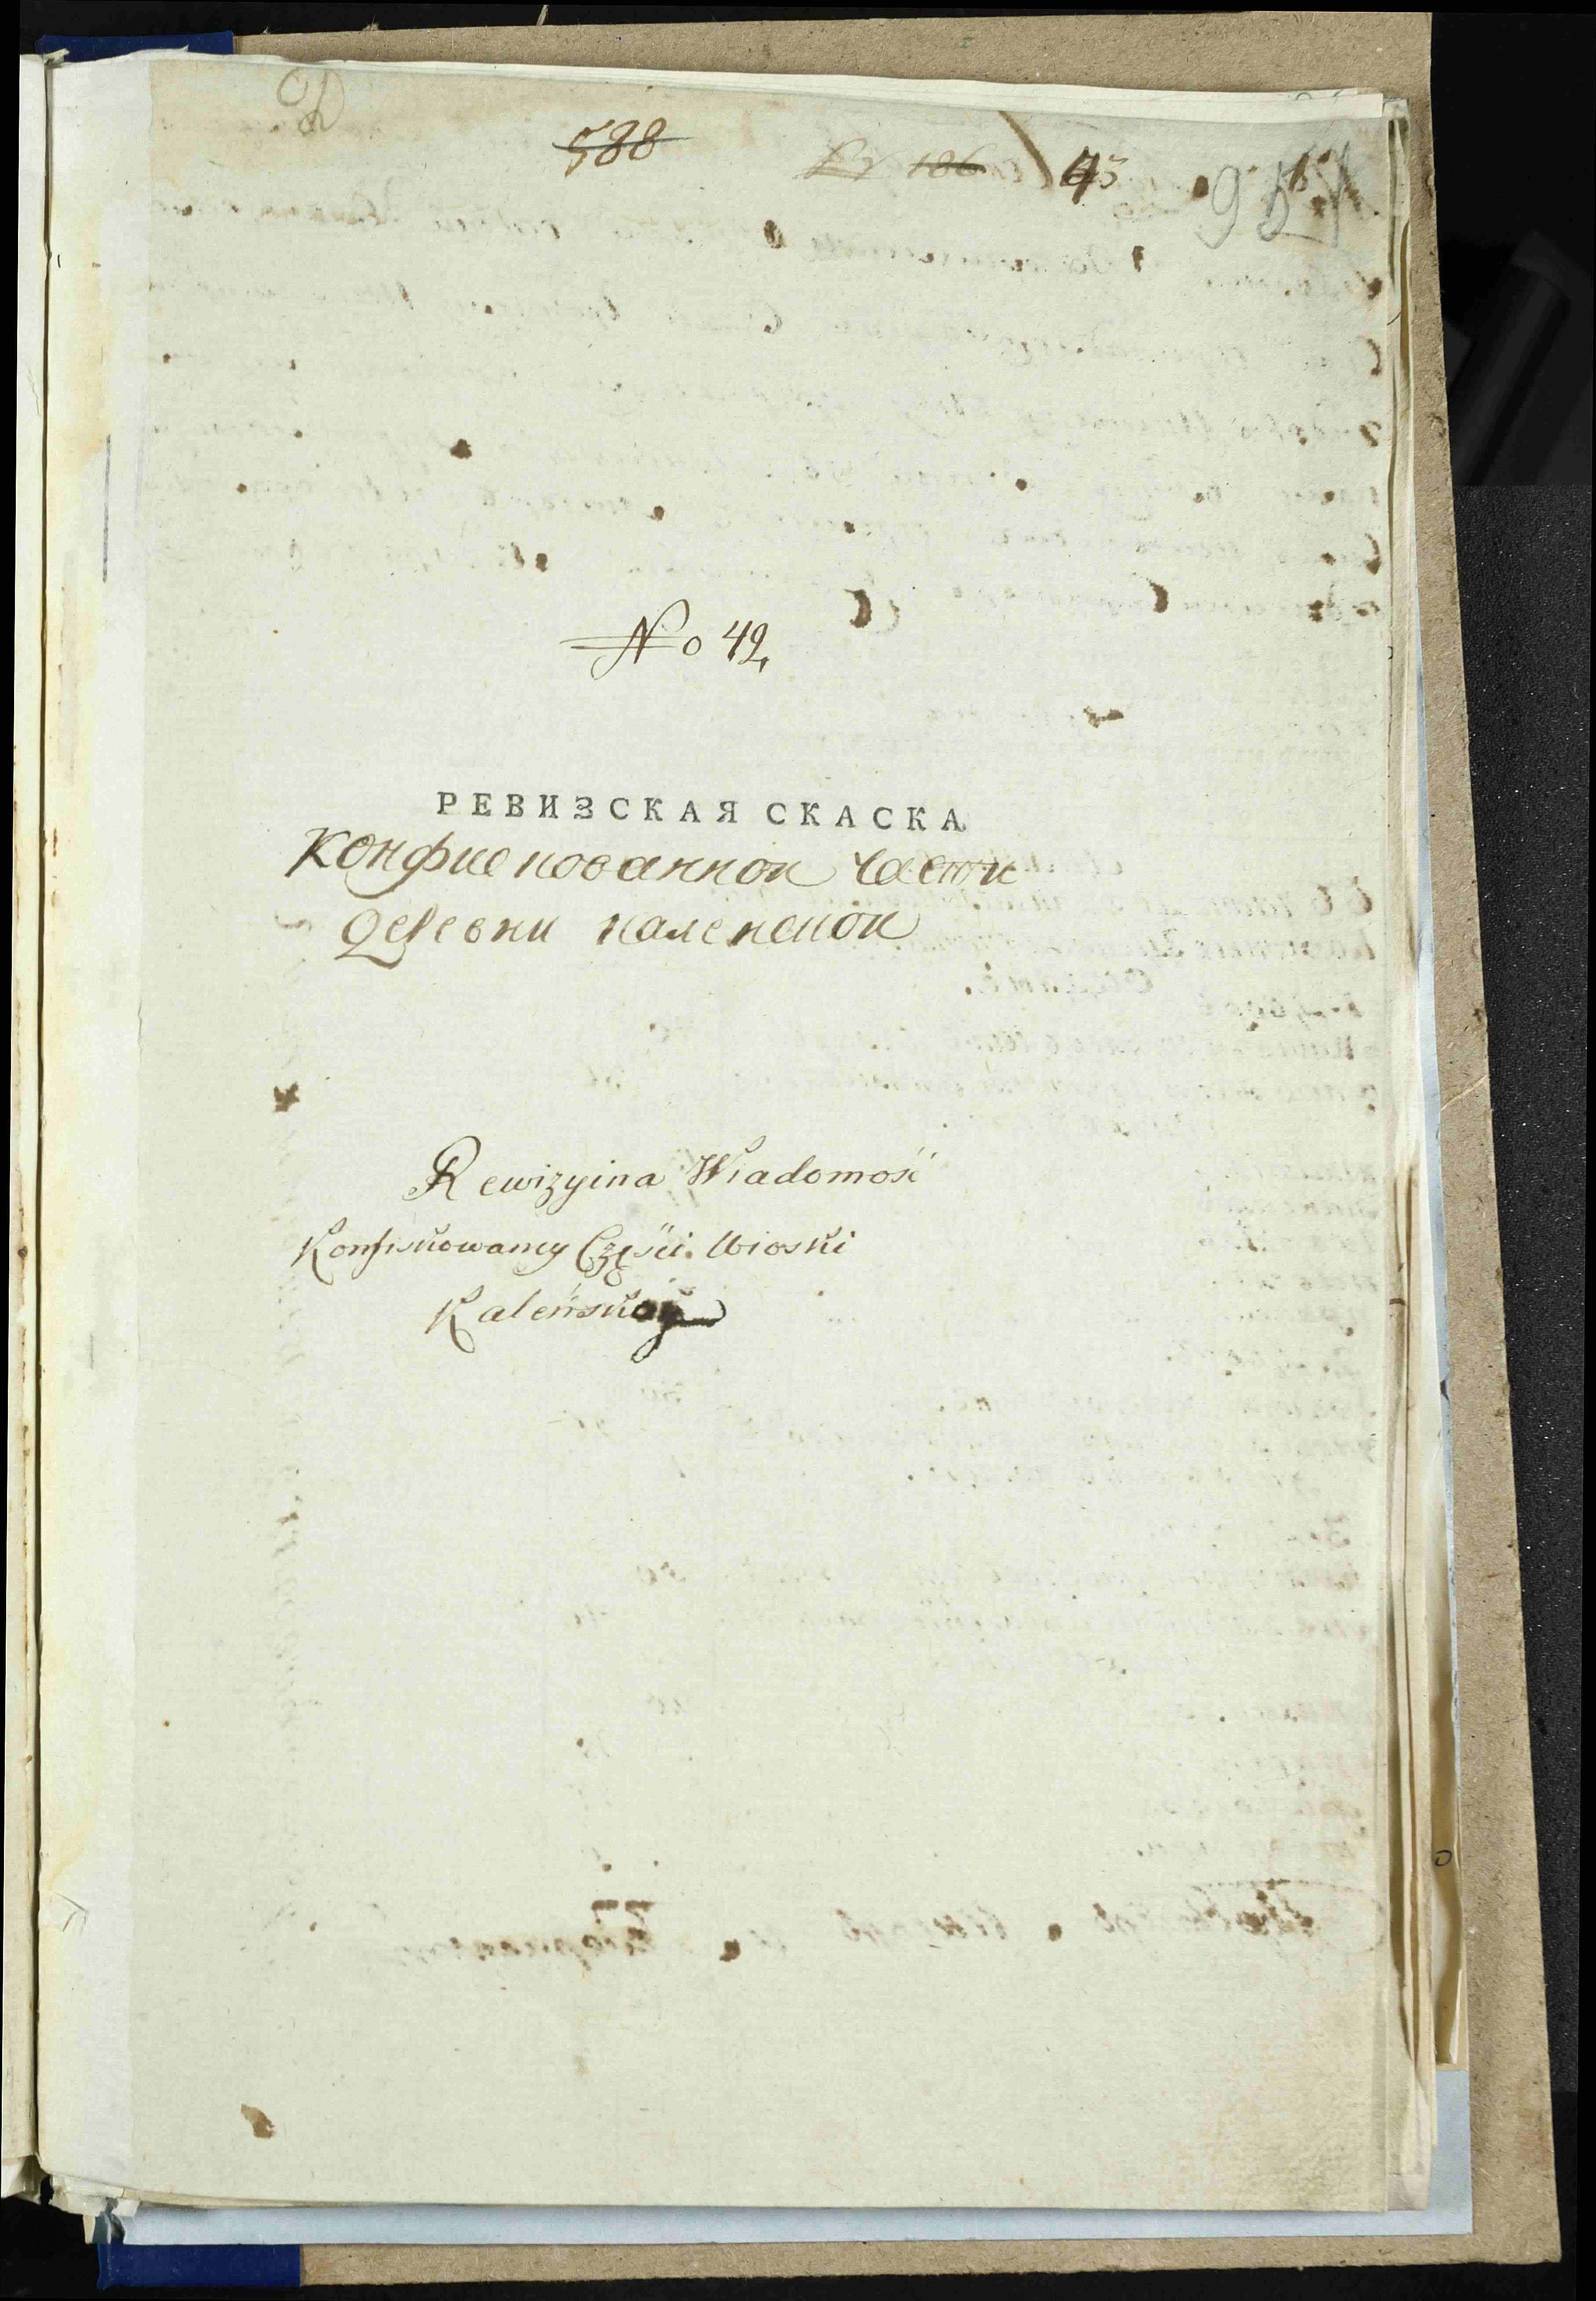 588
186 43 957
No 42,
РЕВИЗСКАЯ СКАСКА
Конфискованной части
деревни каленской
Rewizyina Wiadomość
Konfiskowaney Części Wioski
Kaleńskoy